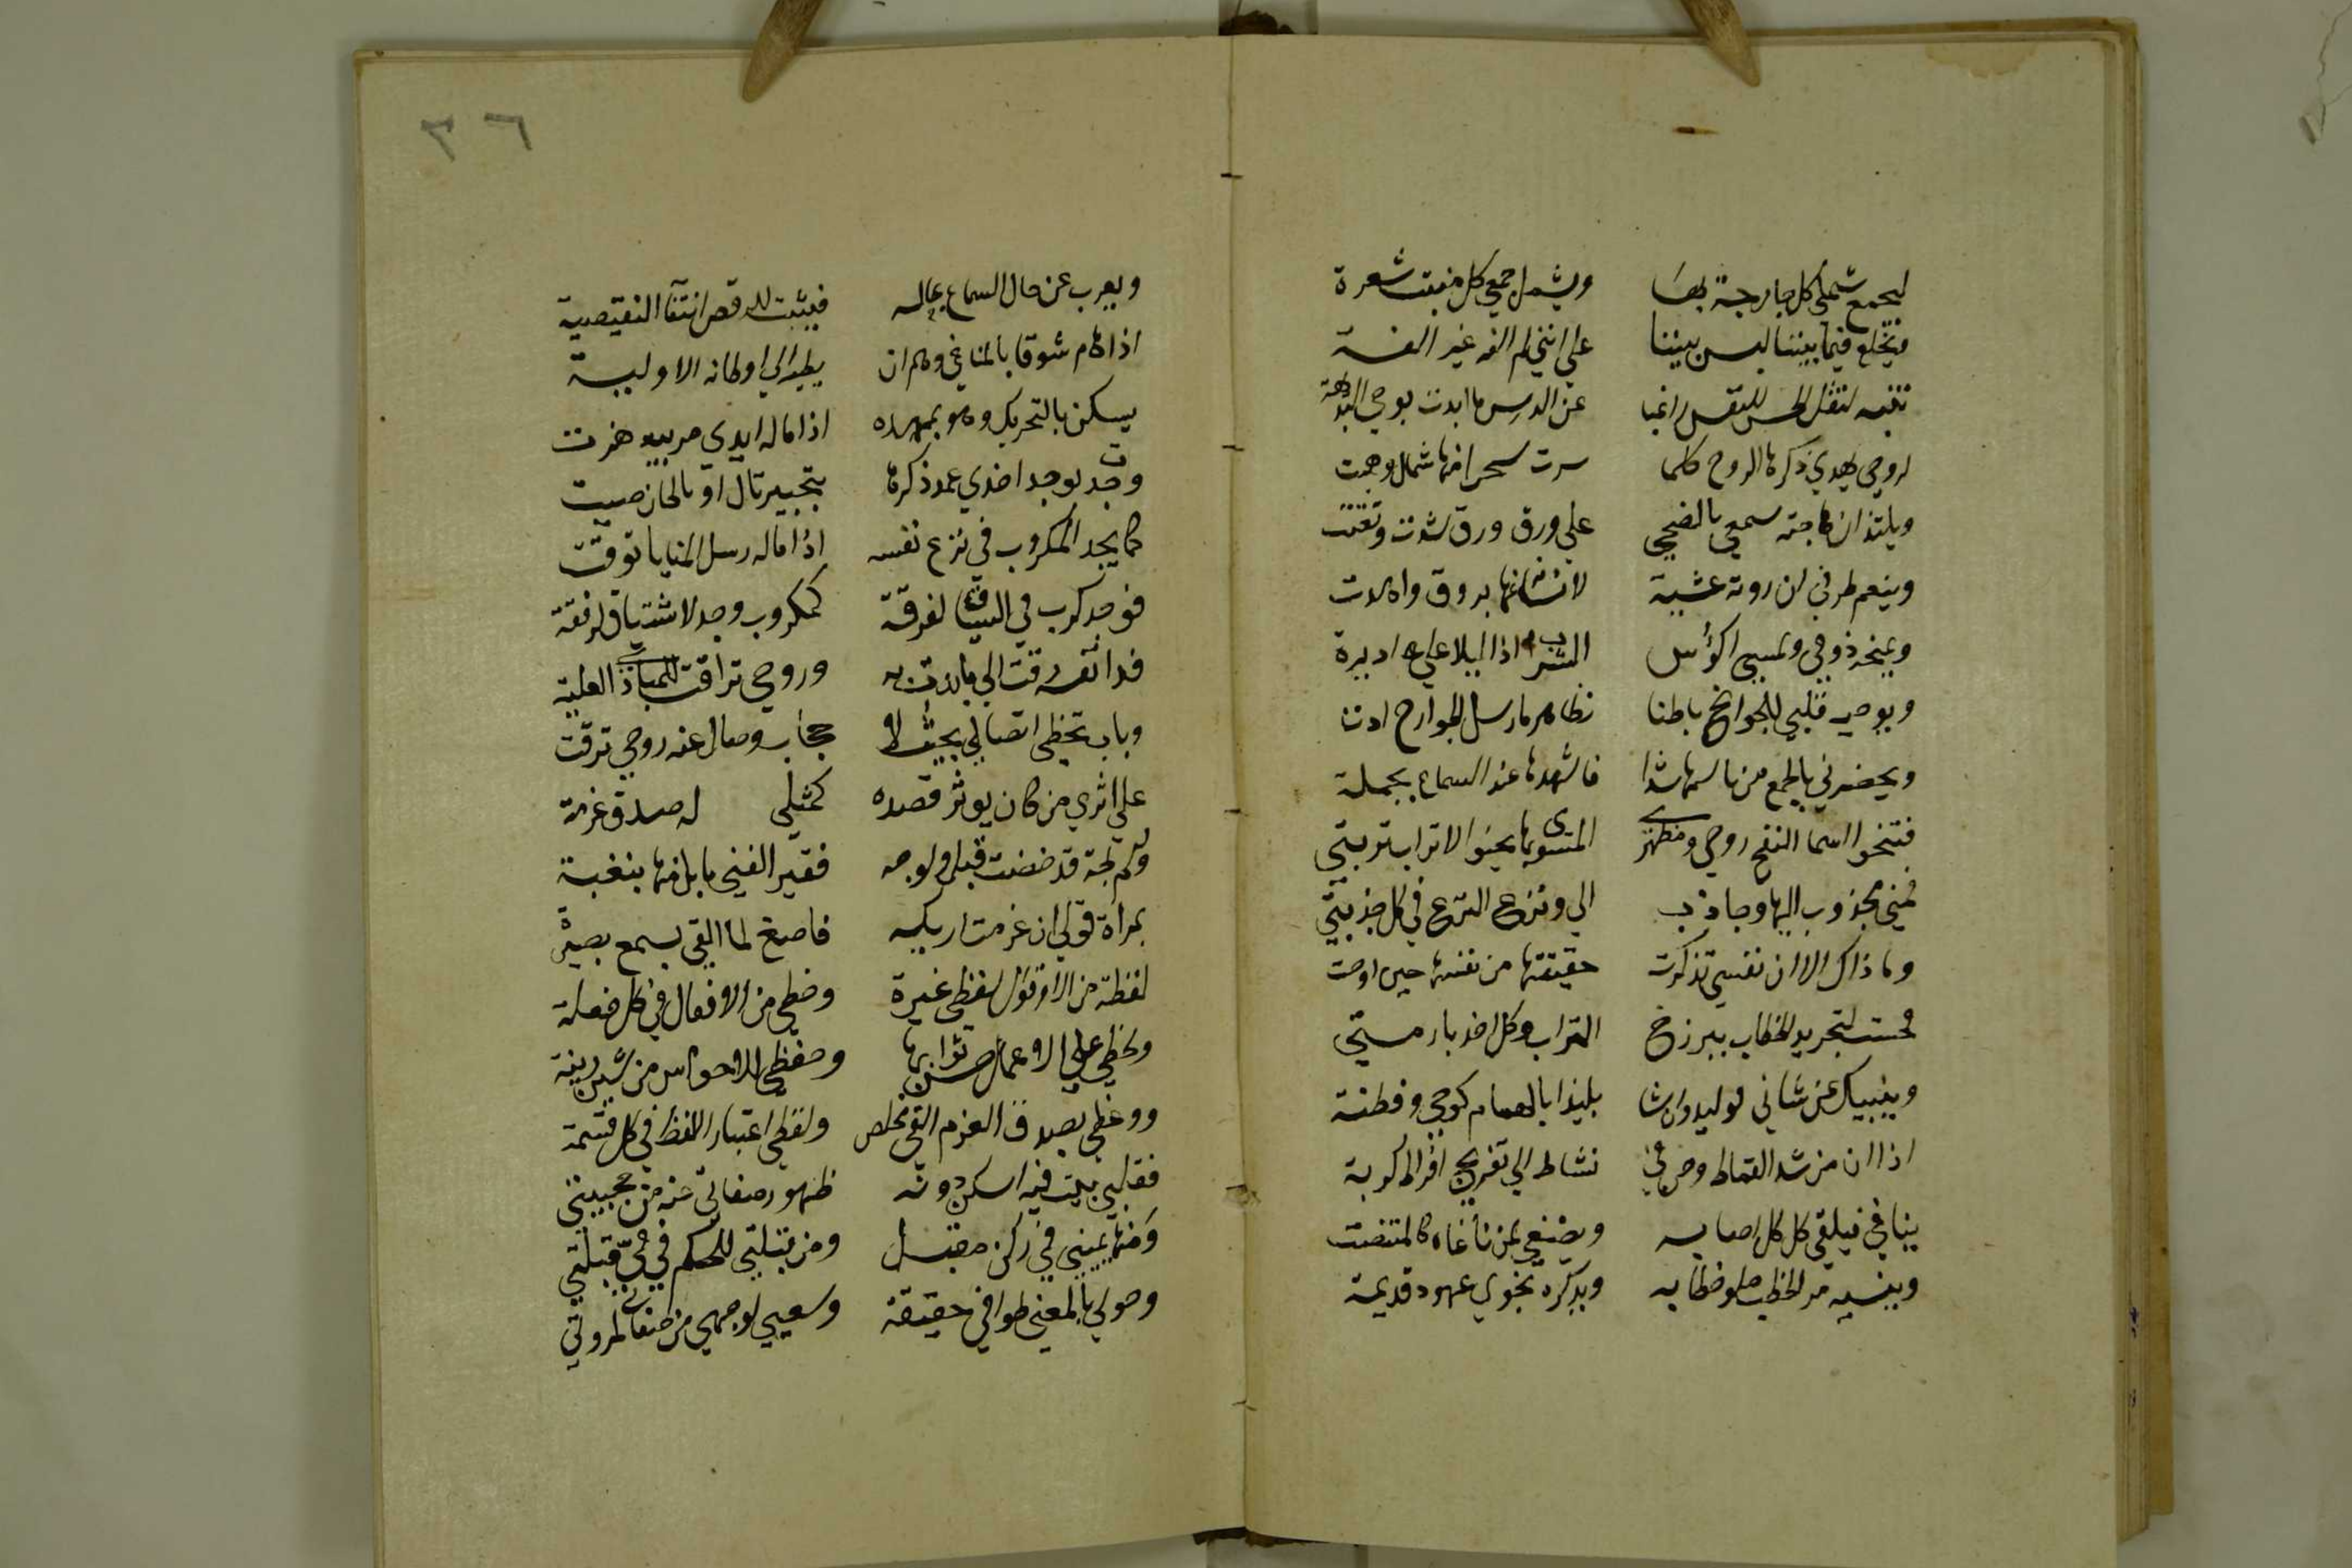 ليجمع شملي كل جارحة بها ويشمل جمعي كل منبت شعرة
ويخلع فيما بيننا لبس بيننا علي انني لم الفه غير الفة
تنبه لنقل الحس للنفس راغبا عن الدرس ما ابدت بوحي البديهة
لروحي يهدي ذكرها الروح كلما سرت سحرا منها شمال وهبت
ويلتذ ان هاجته سمعي بالضحي علي ورق ورق شدت وتغنت
وينعم طرفي ان روته عشية لانسانها بروق واهدت
ويمنحه ذوقي ولمسي اكؤس الشراب اذا ليلا علي اديرة
ويوحيه قلبي للجوانح باطنا بظاهر ما رسل الجوارح ادت
ويحضرني بالجمع من باسمها شدا فاشهدها عند السماع بجملة
فتنحوا السما النفخ روحي ومظهري المسوي بها يحنو الاتراب تربتي
فمني مجذوب اليها وجاذب الي ونزع النزع في كل جذبتي
وما ذاك الا ان نفسي تذكرت حقيقتها من نفسها حين اوحت
فحنت لتجريد الخطاب ببرزخ التراب وكل اخذ بازمتي
وينبيك عن شاني لوليد وان نشا بليدا بالهام كوحي وفطنة
اذا ان من شد القماط وحن في نشاط الي تفريج افراط كربة
يناغي فيلقي كل كل اصابه ويصغي لمن ناغاه كالمتنصت
وينسيه مر الخطب حلو خطابه ويذكره نجوي عهود قديمة
٣٦
ويعرب عن حال السماع بحاله فيثبت للرقص انتفا النقيصة
اذا هام شوقا بالمناغي وهم ان يطير الي اوطانه الاولية
يسكن بالتحريك وهو بمهده اذا ما له ايدي مربيه هزت
وجدت بوجد اخذي عند ذكرها بتحبير تال او بالحان صيت
كما يجد المكروب في نزع نفسه اذا ما له رسل المنايا توفت
فواجد كرب في السياق لفرقة كمكروب وجد لاشتياق لرفقة
فذا نفسه رقت الي ما بدت به وروحي ترقت للمبادي العلية
وباب تخطي اتصالي بحيث لا حجاب وصال عنه روحي ترقت
علي اثري من كان يوثر قصده كمثلي له صدق عزمة
وكم لجة قد خضت قبل ولوجه فقير الغني ما بل منها بنغبة
بمراة قولي ان عزمت اريكه فاصغ لما القي بسمع بصيرة
لفظت من الاقوال لفظي عبرة وحظي من الافعال في كل فعلة
ولحظي علي الاعمال حسن ثوابها وحفظي للاحوال من شين ريبة
ووعظي بصدق العزم القي مخلص ولفظي اعتبار اللفظ في كل قسمة
فقلبي بيت فيه اسكن دونه ظهور صفاتي عنه من حجبيتي
ومنها يميني في ركن مقبل ومن قبلتي للحكم في في قبلتي
وحولي بالمعني طوافي حقيقة وسعيي لوجهي من صفائي لمروتي